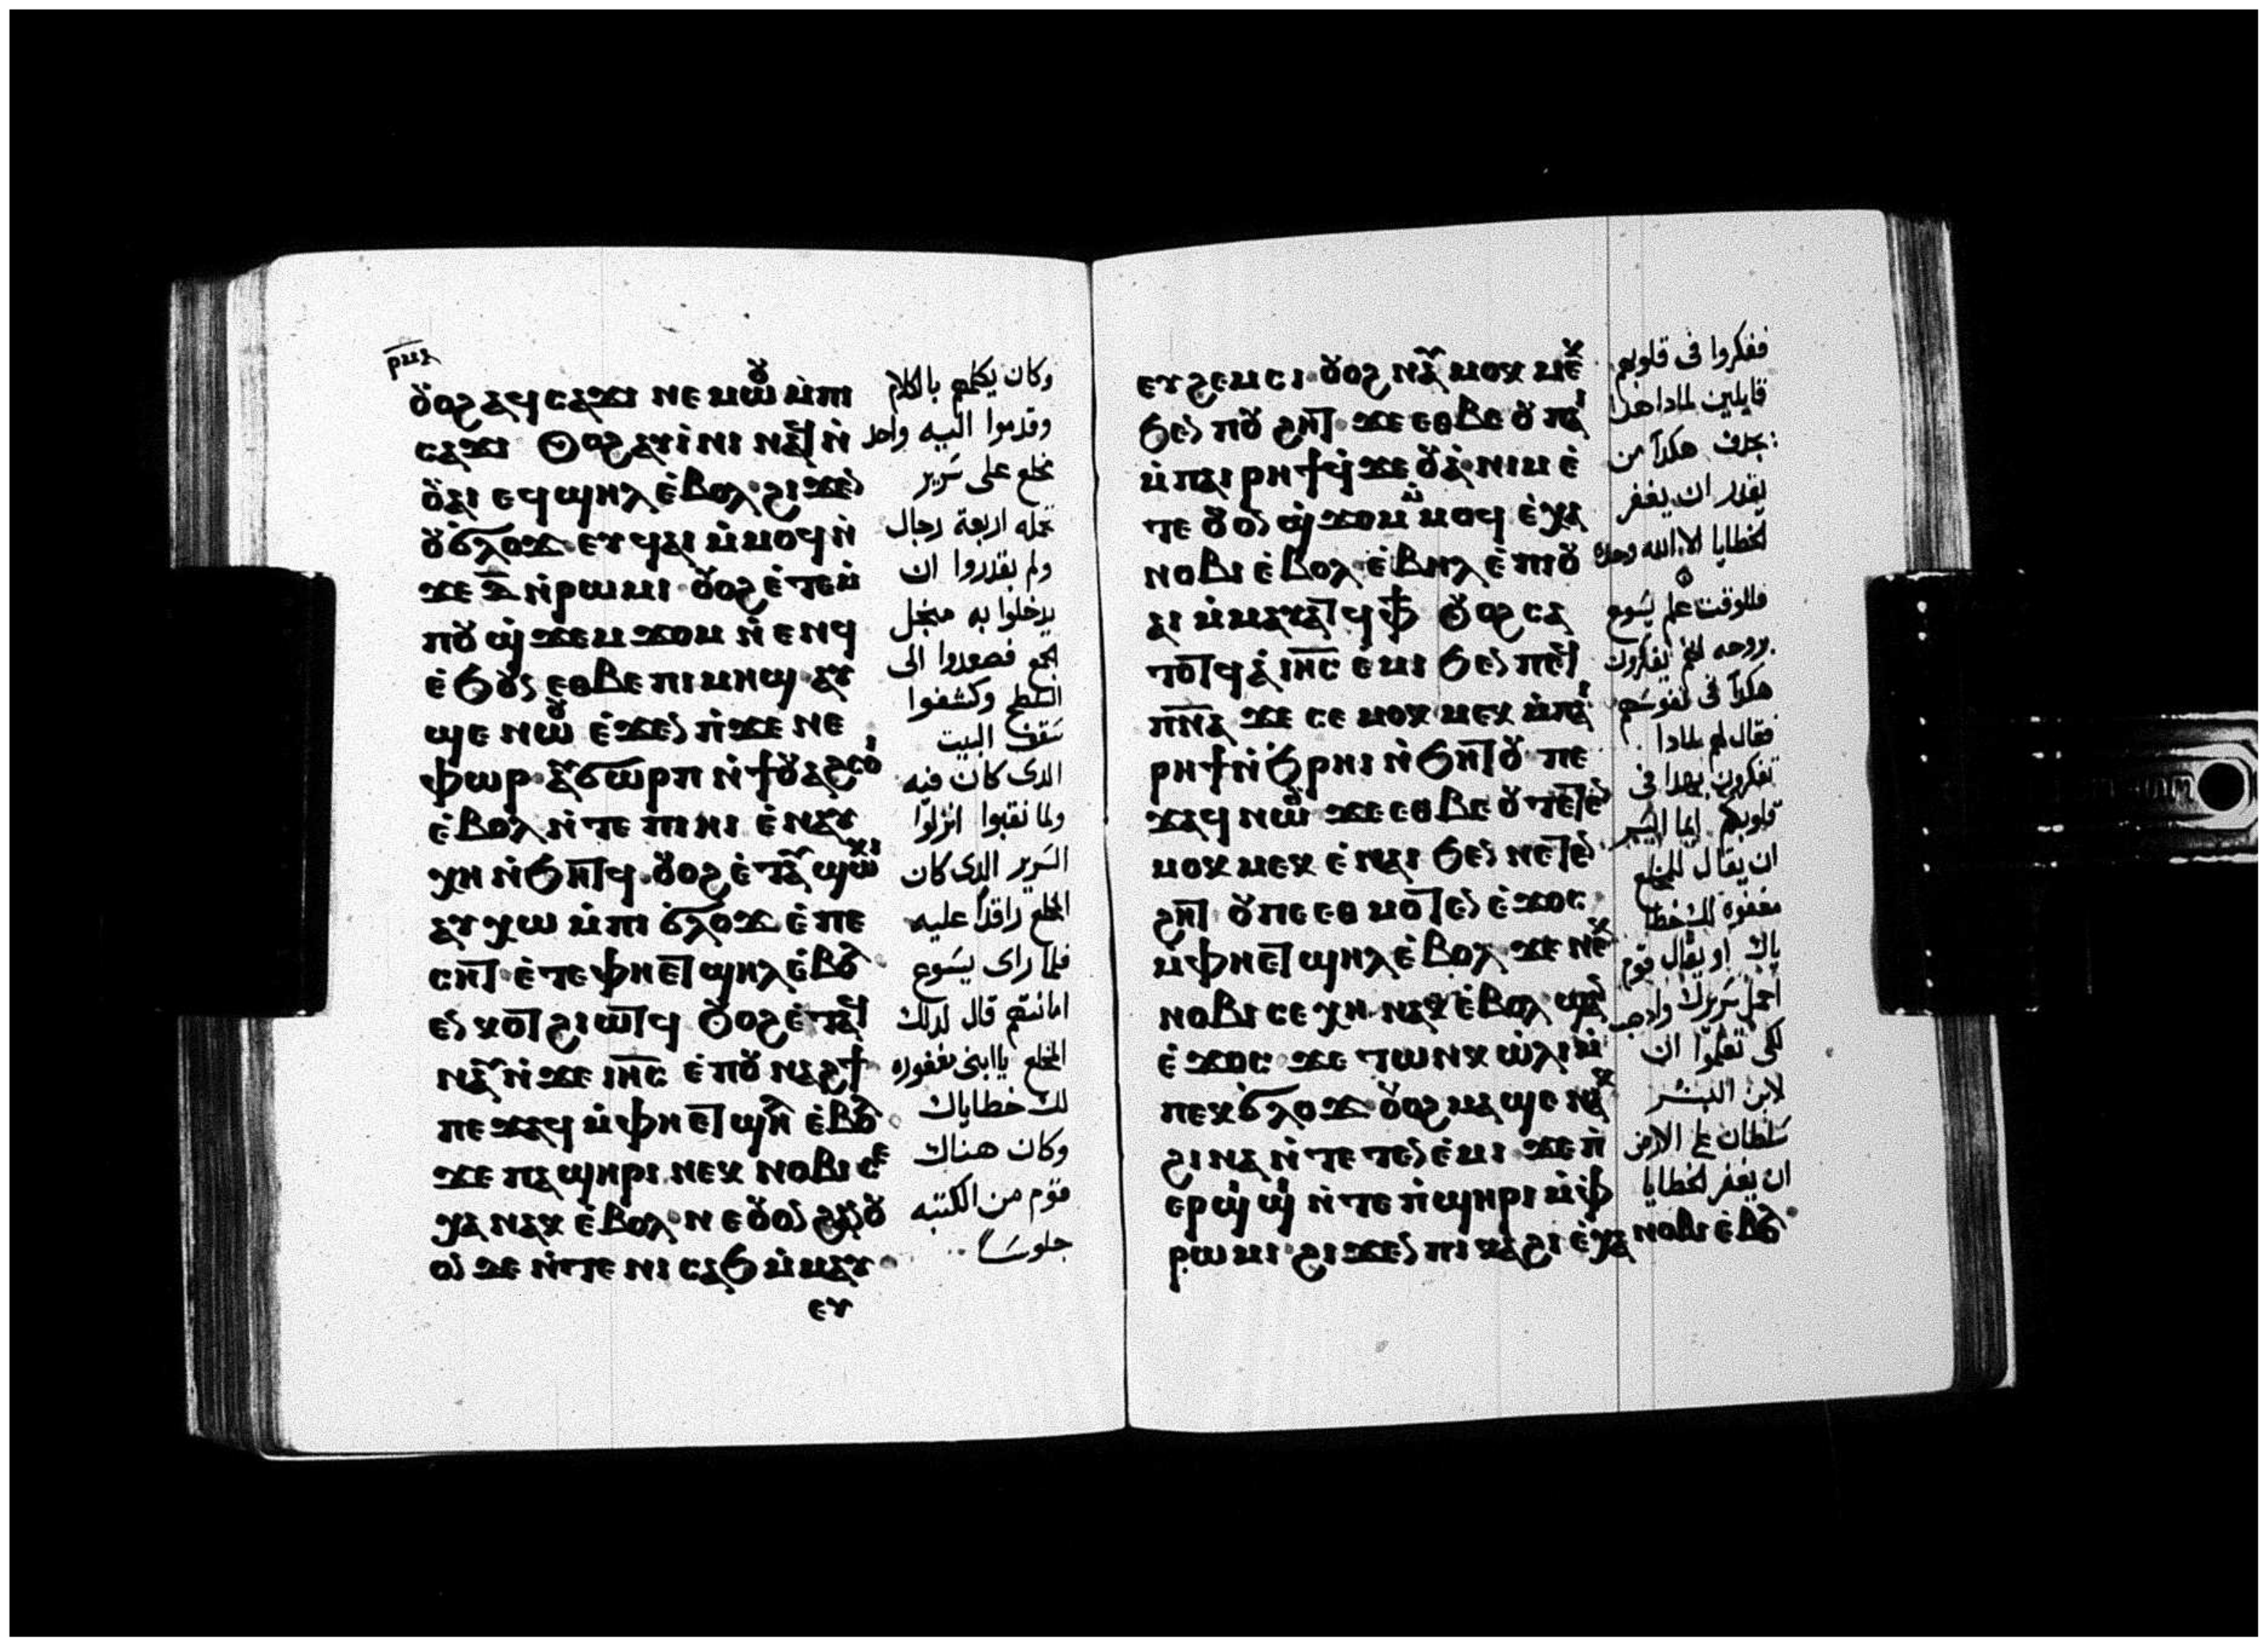 ⲣⲙⲁ
ⲟⲩⲟϩ ⲁϥⲥⲁϫⲓ ⲛⲉⲙⲱⲟⲩ ⲙ̀ⲡⲓ
ⲥⲁϫⲓ Ⲟⲩⲟϩ ⲁⲩⲓ̀ⲛⲓ ⲛⲁϥ ⲛ̀
ⲟⲩⲁⲓ ⲉϥϣⲏⲗ ⲉ̀ⲃⲟⲗ ϩⲓϫⲉⲛ
ⲟⲩϭⲗⲟϫ ⲉⲩϥⲁⲓ ⲙ̀ⲙⲟϥ ⲛ̀
ϫⲉ ⲇ̅ ⲛ̀ⲣⲱⲙⲓ ⲟⲩⲟϩ ⲉ̀ⲧⲉⲙ̀
ⲡⲟⲩϣ̀ϫⲉⲙϫⲟⲙ ⲛ̀ⲉⲛϥ
ⲉ̀ϧⲟⲩⲛ ⲉⲑⲃⲉ ⲡⲓⲙⲏϣ ⲁⲩ
ϣⲉ ⲛⲱⲟⲩ ⲉ̀ϫⲉⲛ ⲡ̀ϫⲉⲛⲉ
ⲫⲱⲣ ⲁⲩϭⲱⲣⲡ ⲛ̀ϯⲟⲩⲁϩⲥⲟⲓ
ⲉ̀ⲃⲟⲗ ⲛ̀ⲧⲉ ⲡⲓⲏⲓ ⲉ̀ⲛⲁⲩ
ⲭⲏ ⲛ̀ϧⲏⲧϥ ⲟⲩⲟϩ ⲉ̀ⲧⲁⲩϣⲱⲕⲓ
ⲁⲩⲭⲱ ⲙ̀ⲡⲓϭⲗⲟϫ ⲉ̀ⲡⲉ
ⲥⲏⲧ ⲉ̀ⲧⲉ ⲫⲏⲉⲧϣⲏⲗ ⲉ̀ⲃⲟⲗ
ⲉⲛⲕⲟⲧ ϩⲓⲱⲧϥ Ⲟⲩⲟϩ ⲉ̀ⲧⲁϥ
ⲛⲁⲩ ⲛ̀ϫⲉ ⲓⲏ̅ⲥ̅ ⲉ̀ⲡⲟⲩⲛⲁϩϯ
ⲡⲉϫⲁϥ ⲙ̀ⲫⲏⲉⲧϣⲏⲗ ⲉ̀ⲃⲟⲗ
ϫⲉ ⲡⲁϣⲏⲣⲓ ⲛⲉⲕⲛⲟⲃⲓ ⲥⲉ
ⲭⲁ ⲛⲁⲕ ⲉ̀ⲃⲟⲗ ⲛⲉⲟⲩⲟⲛ ϩⲁⲛⲟⲩ
ⲟⲛ ⲇⲉ ⲛ̀ⲧⲉ ⲛⲓⲥⲁϧ ⲙ̀ⲙⲁⲩ
ⲉⲩ
وكان يكلمهم بالكلام
وقدموا اليه واحد
مخلع على سرير
تحمله اربعة رجال
ولم يقدروا ان
يدخلوا به من اجل
الجمع فصعدوا الى
السطح وكشفوا
سقف البيت
الدى كان فيه
ولما نقبوا انزلوا
السرير الدى كان
المخلع راقدا عليه
فلما راى يسوع
امانتهم قال لدلك
المخلع يا ابنى مغفوره
لك خطاياك
وكان هناك
قوم من الكتبه
جلوسا
ⲉⲩϩⲉⲙⲥⲓ ⲟⲩⲟϩ ⲛⲁⲩⲙⲟⲕⲙⲉⲕ
ϧⲉⲛ ⲡⲟⲩϩⲏⲧ ϫⲉ ⲉⲑⲃⲉ ⲟⲩ ⲡⲁⲓ
ⲙ̀ⲡⲁⲓⲣⲏϯ ϥ̀ϫⲉⲟⲩⲁ̀ ⲛⲓⲙ ⲉ̀
ⲧⲉ ⲟⲩⲟⲛ ϣ̀ϫⲟⲙ ⲙ̀ⲙⲟϥ ⲉ̀ⲭⲁ
ⲛⲟⲃⲓ ⲉ̀ⲃⲟⲗ ⲉ̀ⲃⲏⲗ ⲉ̀ⲡⲓⲟⲩ
ⲁⲓ ⲙ̀ⲙⲁⲩⲁⲧϥ ⲫϯ Ⲟⲩⲟϩ ⲥⲁ
ⲧⲟⲧϥ ⲁ̀ ⲓⲏ̅ⲥ̅ ⲉ̀ⲙⲓ ϧⲉⲛ ⲡⲉϥ
ⲡⲛ̅ⲁ̅ ϫⲉ ⲥⲉⲙⲟⲕⲙⲉⲕ ⲙ̀ⲡⲁⲓ
ⲣⲏϯ ⲛ̀ϧ̀ⲣⲏⲓ ⲛ̀ϧⲏⲧⲟⲩ ⲡⲉ
ϫⲁϥ ⲛⲱⲟⲩ ϫⲉ ⲉⲑⲃⲉ ⲟⲩ ⲧⲉⲧⲉⲛ
ⲙⲟⲕⲙⲉⲕ ⲉ̀ⲛⲁⲓ ϧⲉⲛ ⲛⲉⲧⲉⲛ
ϩⲏⲧ ⲟⲩ ⲡⲉ ⲉⲑⲙⲟⲧⲉⲛ ⲉ̀ϫⲟⲥ
ⲙ̀ⲫⲏⲉⲧϣⲏⲗ ⲉ̀ⲃⲟⲗ ϫⲉ ⲛⲉⲕ
ⲛⲟⲃⲓ ⲥⲉⲭⲏ ⲛⲁⲕ ⲉ̀ⲃⲟⲗ ϣⲁⲛ
ⲉ̀ϫⲟⲥ ϫⲉ ⲧⲱⲛⲕ ⲱ̀ⲗⲓ ⲙ̀
ⲡⲉⲕϭⲗⲟϫ ⲟⲩⲟϩ ⲙⲁϣⲉ ⲛⲁⲕ
ϩⲓⲛⲁ ⲛ̀ⲧⲉⲧⲉⲛⲉ̀ⲙⲓ ϫⲉ ⲡ̀
ⲉⲣϣⲓϣⲓ ⲛ̀ⲧⲉ ⲡ̀ϣⲏⲣⲓ ⲙ̀ⲫ̀
ⲣⲱⲙⲓ ϩⲓϫⲉⲛ ⲡⲓⲕⲁϩⲓ ⲉ̀ⲭⲁ ⲛⲟⲃⲓ ⲉ̀ⲃⲟⲗ
ففكروا فى قلوبهم
قايلين لمادا هدا
يجدف هكدا من
يقدر ان يغفر
الخطايا الا الله وحده
فللوقت علم يسوع
بروحه انهم يفكرون
هكدا فى نفوسهم
فقال لهم لمادا
تفكرون بهدا فى
قلوبكم ايما ايسر
ان يقال للمخلع
مغفوره لك خطا
ياك او يقال قوم
احمل سريرك وادهب
لكى تعلموا ان
لابن البشر
سلطان على الارض
ان يغفر الخطايا